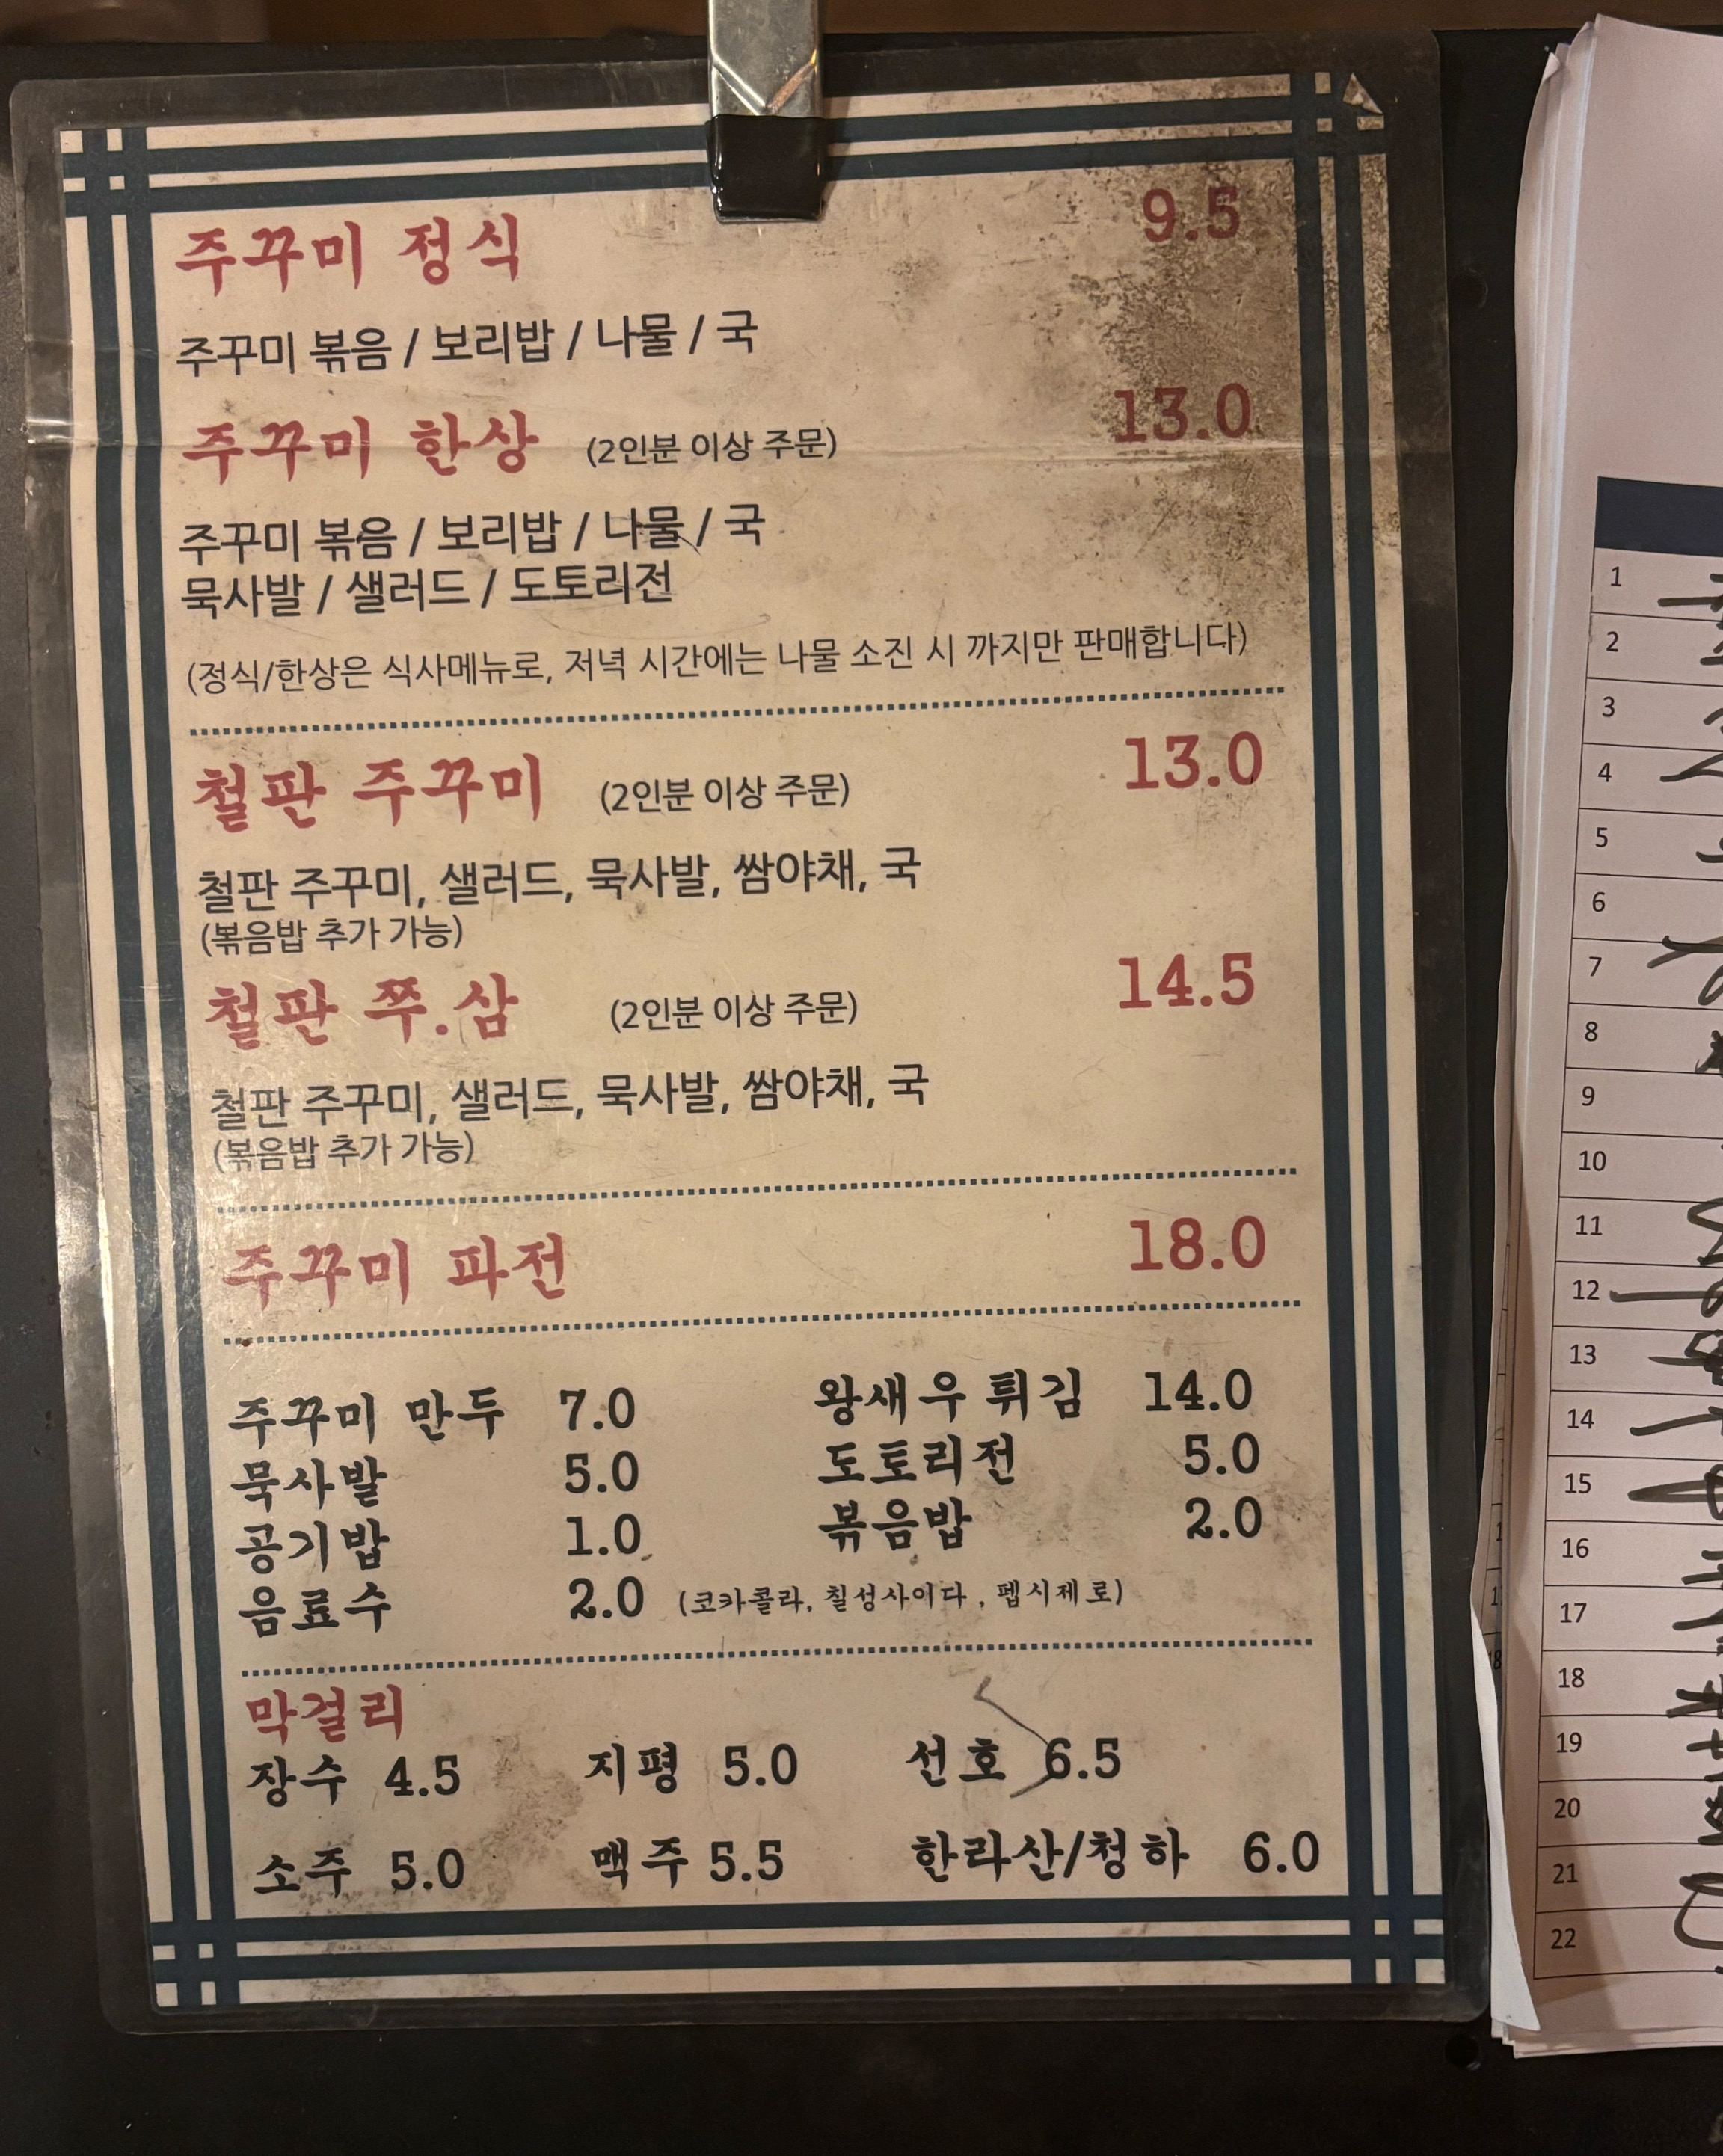 주꾸미 정식 9.5
주꾸미 볶음 / 보리밥 / 나물 / 국
주꾸미 한상 (2인분 이상 주문) 13.0
주꾸미 볶음 / 보리밥 / 나물 / 국
묵사발 / 샐러드 / 도토리전
(정식/한상은 식사메뉴로, 저녁 시간에는 나물 소진 시 까지만 판매합니다)
철판 주꾸미 (2인분 이상 주문) 13.0
철판 주꾸미, 샐러드, 묵사발, 쌈야채, 국
(볶음밥 추가 가능)
철판 쭈.삼 (2인분 이상 주문) 14.5
철판 주꾸미, 샐러드, 묵사발, 쌈야채, 국
(볶음밥 추가 가능)
주꾸미 파전 18.0
주꾸미 만두 7.0 왕새우 튀김 14.0
묵사발 5.0 도토리전 5.0
공기밥 1.0 볶음밥 2.0
음료수 2.0 (코카콜라, 칠성사이다 , 펩시제로)
막걸리
장수 4.5 지평 5.0 선호 6.5
소주 5.0 맥주 5.5 한라산/청하 6.0
1
2
3
4
5
6
7
8
9
10
11
12
13
14
15
16
17
18
19
20
21
22